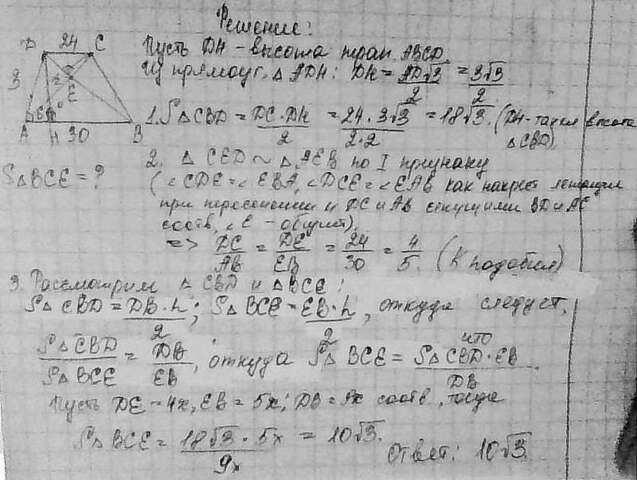 Решение:
D 24 C
3
E
60°
A H 30 B
S△BCE = ?
Пусть DH - высота трап. ABCD.
Из прямоуг. △ ADH: DH = AD√3/2 = 3√3/2
1. S△CBD = DC·DH/2 = 24·3√3/2·2 = 18√3. (DH - также высота
△CBD).
2. △ CED ~ △ AEB по I признаку
(∠CDE = ∠EBA, ∠DCE = ∠EAB как накрест лежащие
при пересечении DC и AB секущими BD и AC
соотв., ∠E - общий).
=> DC/AB = DE/EB = 24/30 = 4/5. (К подобия)
3. Рассмотрим △ CBD и △BCE:
S△ CBD = DB·h/2; S△BCE = EB·h/2, откуда следует,
что
S△CBD/S△BCE = DB/EB, откуда S△ BCE = S△CBD·EB/DB.
Пусть DE = 4x, EB = 5x; DB = 9x соотв., тогда
S△ BCE = 18√3·5x/9x = 10√3.
Ответ: 10√3.